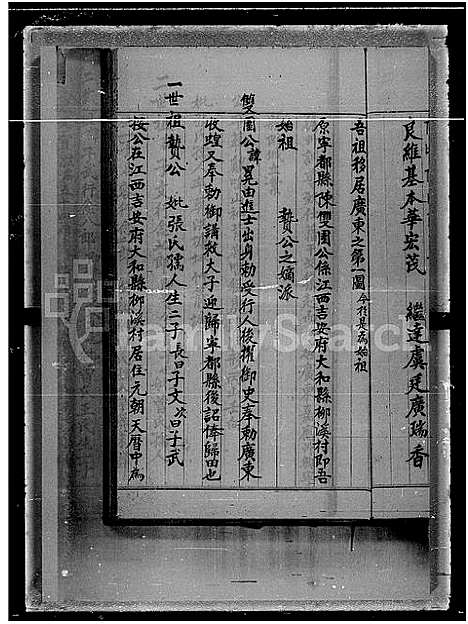 良維基本華宏茂　繼達虞廷廣瑞香
吾祖移居廣東之第一圖 今於是為始祖
原寧都縣陳雙園公係江西吉安府大和縣柳溪村即吾
始祖　贄公之嫡派
雙園公諱晃由進士出身勅受行人後擢御史奉勅廣東
收蝗又奉勅御講救大子迎歸寧都縣後詔俸歸田也
一世祖贄公　妣張氏孺人生二子長曰子文次曰子武
按公在江西吉安府大和縣柳溪村居住元朝天曆中為
FamilySearch